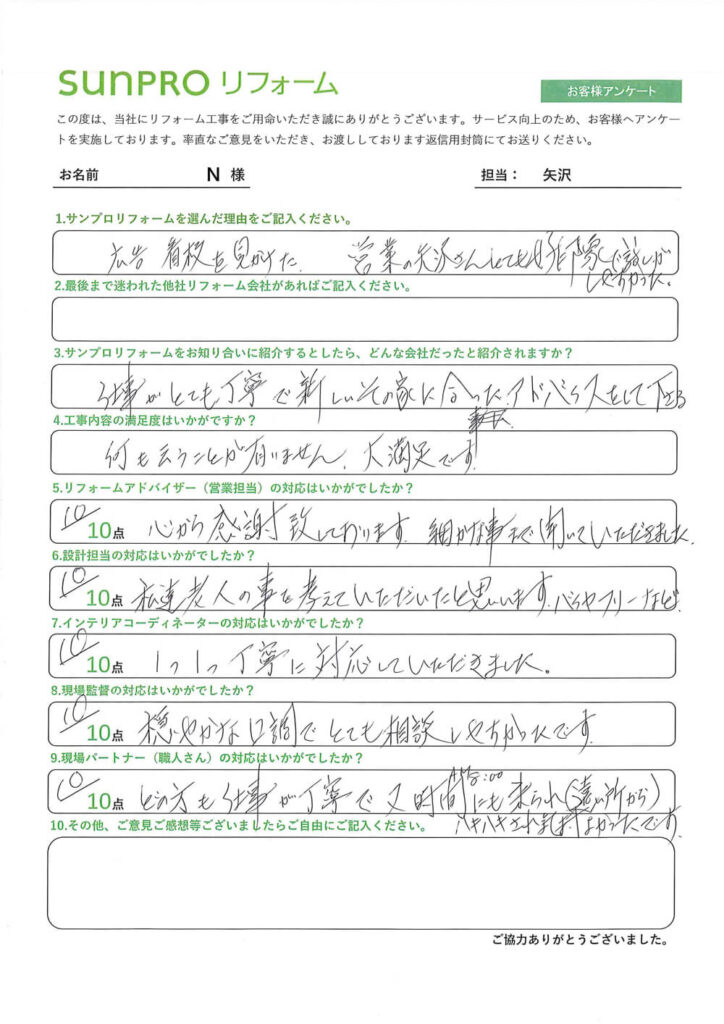 sunPRO リフォーム
お客様アンケート
この度は、当社にリフォーム工事をご用命いただき誠にありがとうございます。サービス向上のため、お客様へアンケー
トを実施しております。率直なご意見をいただき、お渡ししております返信用封筒にてお送りください。
お名前 N 様 担当： 矢沢
1.サンプロリフォームを選んだ理由をご記入ください。
広告 看板を見かけた. 営業の矢沢さんとても好印象で話しが
しやすかった。
2.最後まで迷われた他社リフォーム会社があればご記入ください。
3.サンプロリフォームをお知り合いに紹介するとしたら、どんな会社だったと紹介されますか？
仕事がとても丁寧で新しいその家に合ったアドバイスをして下さる
4.工事内容の満足度はいかがですか？
何も云うことが有りません. 大満足です.
5.リフォームアドバイザー（営業担当）の対応はいかがでしたか？
10 10点 心から感謝致しております. 細かな事まで聞いていただきました.
6.設計担当の対応はいかがでしたか？
10 10点 私達老人の事を考えていただいたと思います. バリヤフリーなど.
7.インテリアコーディネーターの対応はいかがでしたか？
10 10点 1つ1つ丁寧に対応していただきました。
8.現場監督の対応はいかがでしたか？
10 10点 穏やかな口調でとても相談しやすかったです.
9.現場パートナー（職人さん）の対応はいかがでしたか？
10 10点 どの方も仕事が丁寧で又時間にも来られ(遠い所から)
ハキハキされ気持よかったです.
10.その他、ご意見ご感想等ございましたらご自由にご記入ください。
ご協力ありがとうございました。